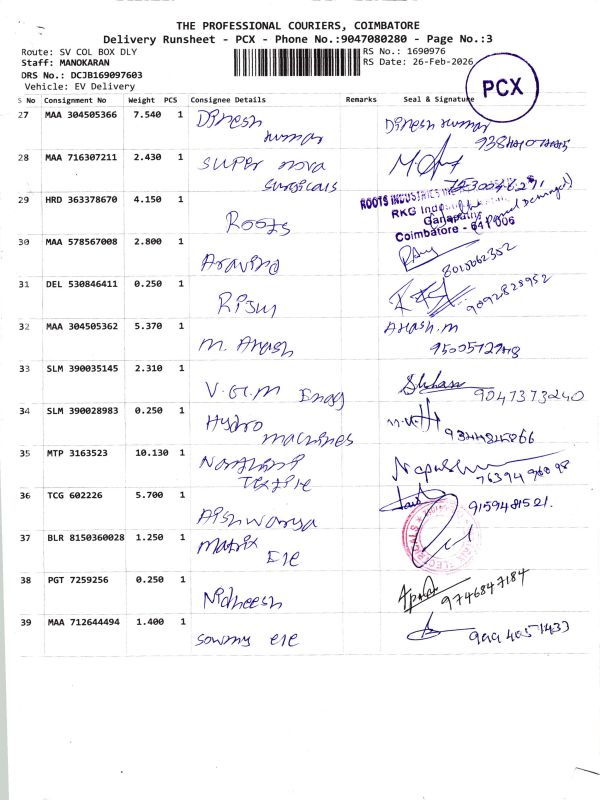 THE PROFESSIONAL COURIERS, COIMBATORE
Delivery Runsheet - PCX - Phone No.:9047080280 - Page No.:3
Route: SV COL BOX DLY
RS No.: 1690976
Staff: MANOKARAN
RS Date: 26-Feb-2026
DRS No.: DCJB169097603
Vehicle: EV Delivery
PCX
S No Consignment No Weight PCS Consignee Details Remarks Seal & Signature
27 MAA 304505366 7.540 1 Dinesh Dinesh kumar
kumar
28 MAA 716307211 2.430 1 super nova
surgicals
29 HRD 363378670 4.150 1 Roots
ROOTS INDUSTRIES
RKG
Ganapathy
Coimbatore - 641 006
30 MAA 578567008 2.800 1 Aravind
8015662352
31 DEL 530846411 0.250 1 Riju
9092828952
32 MAA 304505362 5.370 1 M. Akash Akash.m
33 SLM 390035145 2.310 1 V.G.M Engg
9047373240
34 SLM 390028983 0.250 1 Hydro
machines
35 MTP 3163523 10.130 1
36 TCG 602226 5.700 1 Aishwarya
9159481521.
37 BLR 8150360028 1.250 1 Matrix
Ele
38 PGT 7259256 0.250 1 Nidheesh
9746847184
39 MAA 712644494 1.400 1 sowmy ele
9994051433